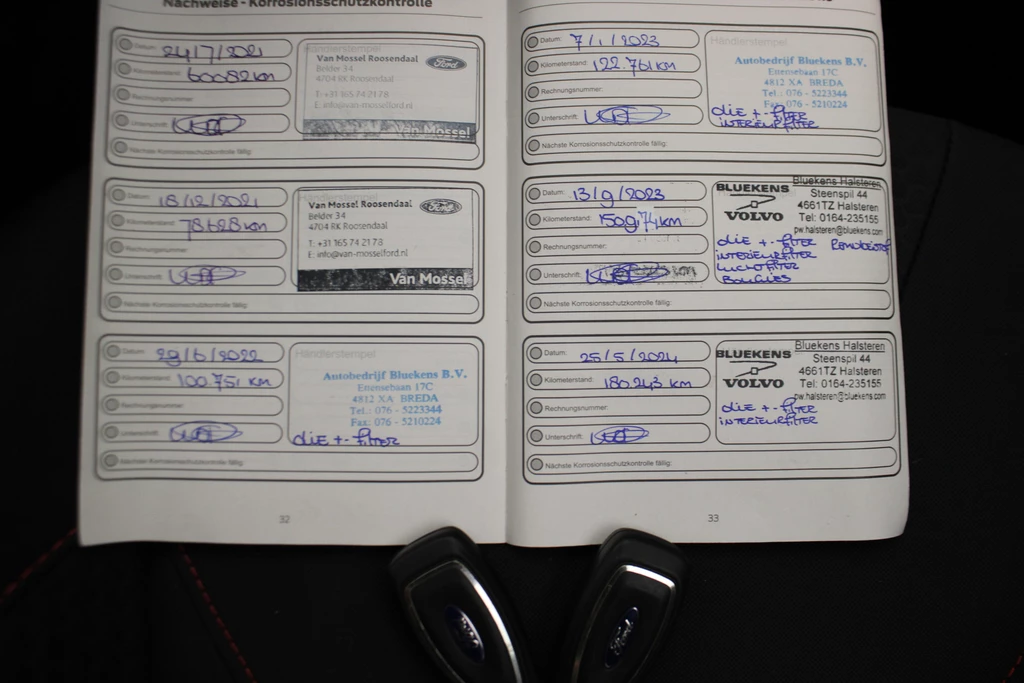 Nachweise - Korrosionsschutzkontrolle
Datum: 24/7/2021
Kilometerstand: 60082km
Rechnungsnummer:
Unterschrift:
Nächste Korrosionsschutzkontrolle fällig:
Händlerstempel
Van Mossel Roosendaal
Belder 34
4704 RK Roosendaal
T: +31 165 74 21 78
E: info@van-mosselford.nl
Ford
Van Mossel
Datum: 18/12/2021
Kilometerstand: 78628km
Rechnungsnummer:
Unterschrift:
Nächste Korrosionsschutzkontrolle fällig:
Van Mossel Roosendaal
Belder 34
4704 RK Roosendaal
T: +31 165 74 21 78
E: info@van-mosselford.nl
Ford
Van Mossel
Datum: 29/6/2022
Kilometerstand: 100.751 KM
Rechnungsnummer:
Unterschrift:
Nächste Korrosionsschutzkontrolle fällig:
Händlerstempel
Autobedrijf Bluekens B.V.
Ettensebaan 17C
4812 XA BREDA
Tel.: 076 - 5223344
Fax: 076 - 5210224
OLIE + - FILTER
32
Datum: 7/1/2023
Kilometerstand: 122.761 KM
Rechnungsnummer:
Unterschrift:
Nächste Korrosionsschutzkontrolle fällig:
Händlerstempel
Autobedrijf Bluekens B.V.
Ettensebaan 17C
4812 XA BREDA
Tel.: 076 - 5223344
Fax: 076 - 5210224
OLIE + - FILTER
INTERIEURFILTER
Datum: 13/9/2023
Kilometerstand:
Rechnungsnummer:
Unterschrift:
Nächste Korrosionsschutzkontrolle fällig:
BLUEKENS
VOLVO
Bluekens Halsteren
Steenspil 44
4661TZ Halsteren
Tel: 0164-235155
pw.halsteren@bluekens.com
OLIE + - FILTER REMVLOEISTOF
INTERIEURFILTER
LUCHTFILTER
BOUGIES
Datum: 25/5/2024
Kilometerstand: 180.243 KM
Rechnungsnummer:
Unterschrift:
Nächste Korrosionsschutzkontrolle fällig:
BLUEKENS
VOLVO
Bluekens Halsteren
Steenspil 44
4661TZ Halsteren
Tel: 0164-235155
pw.halsteren@bluekens.com
OLIE + - FILTER
INTERIEURFILTER
33
Ford
Ford